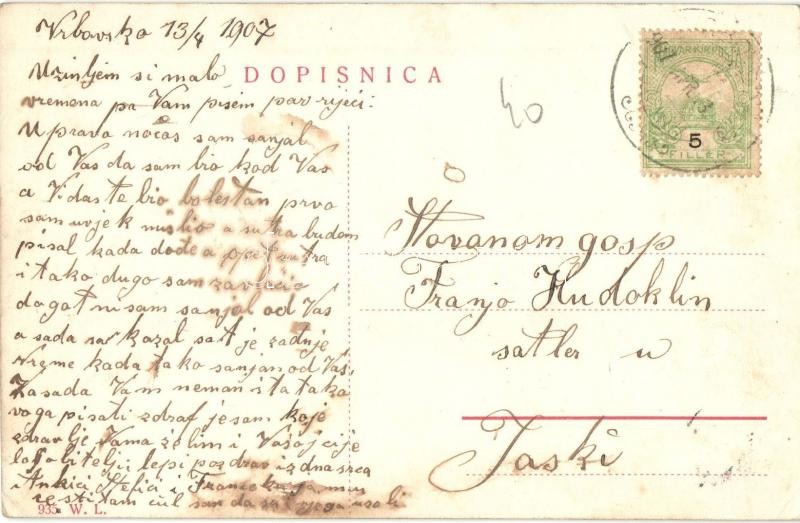 Vrbovsko 13/4 1907
Uzimljem si malo
DOPISNICA
vremena pa Vam pišem par riječi:
U pravo nočas sam sanjal
od Vas da sam bio kod Vas
a Vi da ste bio bolestan prvo
sam uvjek mislio a sutra budem
pisal kada dođe a opet sutra
i tako dugo sam zavlačio
da gat nisam sanjal od Vas
a sada kazal sat je zadnje
vrjeme kada tako sanjam od Vas.
Za sada Vam nemam išta tako
voga pisati zdraf jesam koje
zdravlje Vama želim i Vašoj cije
loj obitelji lepi pozdrav iz dna srca
i Ankici Štefici i
čestitam čul sam da
40
5
FILLER
Štovanom gosp
Franjo Hudoklin
satler u
Jaski
935 W. L.